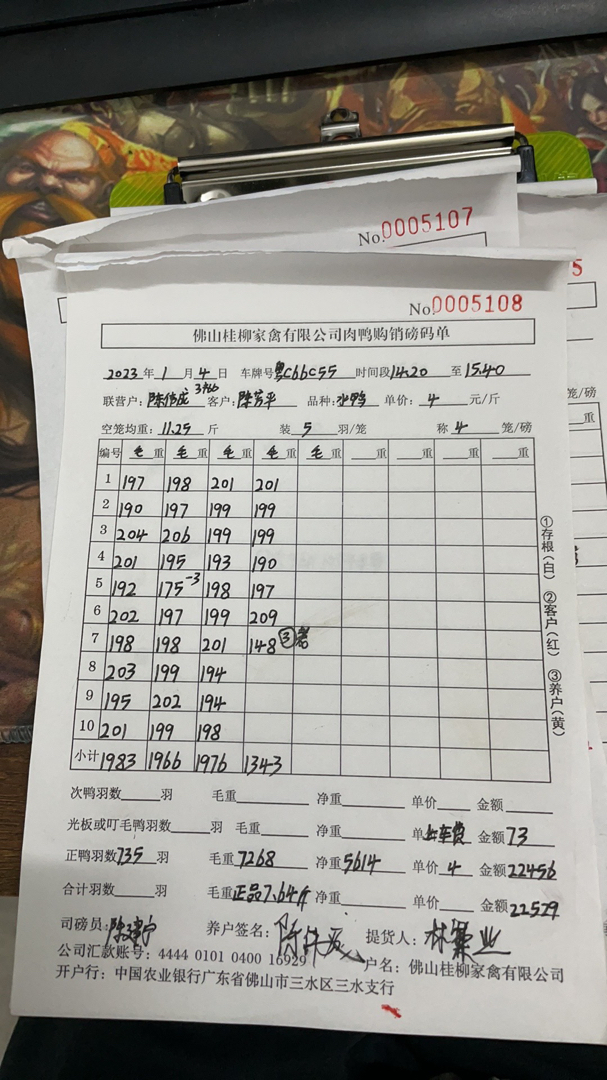 No.0005107
No.0005108
佛山桂柳家禽有限公司肉鸭购销磅码单
2023年1月4日 车牌号粤C66C55 时间段14:20至15:40
联营户:陈伟成 客户:陈芳平 品种:水鸭 单价:4元/斤
空笼均重:11.25斤 装5羽/笼 称4笼/磅
编号 毛重 毛重 毛重 毛重 毛重 重 重 重
1 197 198 201 201
2 190 197 199 199
3 204 206 199 199
4 201 195 193 190
5 192 175-3 198 197
6 202 197 199 209
7 198 198 201 148 ③笼
8 203 199 194
9 195 202 194
10 201 199 198
小计 1983 1966 1976 1343
①存根(白) ②客户(红) ③养户(黄)
笼/磅
重
次鸭羽数 羽 毛重 净重 单价 金额
光板或叮毛鸭羽数 羽 毛重 净重 单 上车费 金额73
正鸭羽数735羽 毛重7268 净重5614 单价4 金额22456
合计羽数 羽 毛重正品7.64斤 净重 单价 金额22529
司磅员: 养户签名: 提货人:林繁业
公司汇款账号:4444 0101 0400 16929 户名:佛山桂柳家禽有限公司
开户行:中国农业银行广东省佛山市三水区三水支行